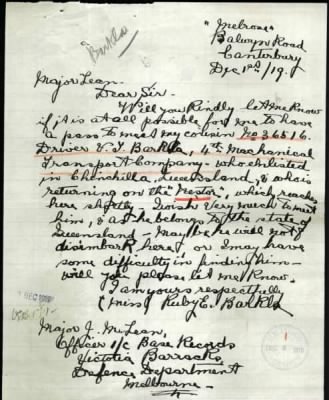 Barkla
"Melrose"
Balwyn Road
Canterbury
Dec 1st/19.
Major Lean.
Dear Sir.
Will you kindly let me know
if it is at all possible for me to have
a pass to meet my cousin No. 36516.
Driver V. J. Barkla, 4th Mechanical
Transport Company - who enlisted
in Chinchilla, Queensland, & who is
returning on the "Nestor", which reaches
here shortly. I wish very much to meet
him, & as he belongs to the state of
Queensland - maybe he will not
disembark here, or I may have
some difficulty in finding him -
will you please let me know.
I am yours respectfully
(Miss) Ruby E. Barkla
Major J. McLean,
Officer i/c Base Records
Victoria Barracks
Defence Department
Melbourne -